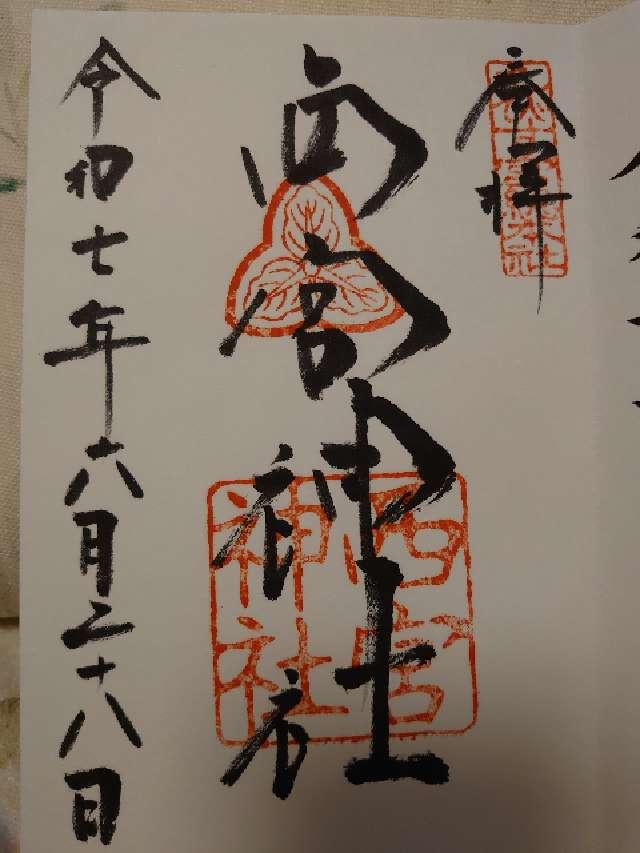 奉拝
西宮神社
西宮
神社
令和七年六月二十八日